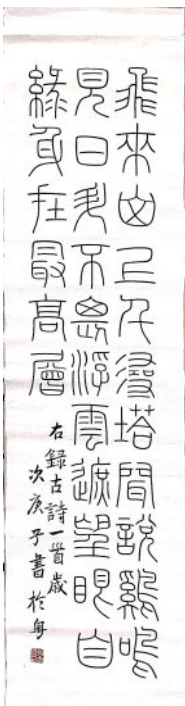 飛來山上千尋塔聞說鷄鳴
見日升不畏浮雲遮望眼自
緣身在最高層
右錄古詩一首歲
次庚子書於粵